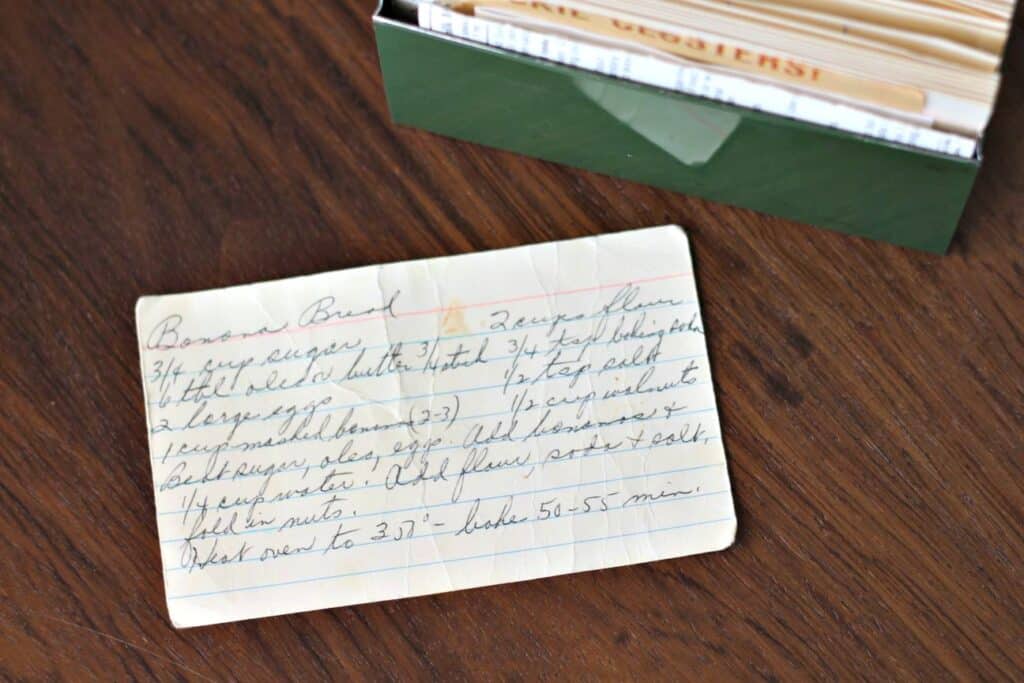 CLUSTERS!
Banana Bread
3/4 cup sugar 2 cups flour
6 tbl oleo or butter 3/4 stick 3/4 tsp baking soda
2 large eggs 1/2 tsp salt
1 cup mashed banana (2-3) 1/2 cup walnuts
Beat sugar, oleo, eggs. Add bananas +
1/4 cup water. Add flour, soda + salt,
fold in nuts.
Heat oven to 350° - bake 50-55 min.